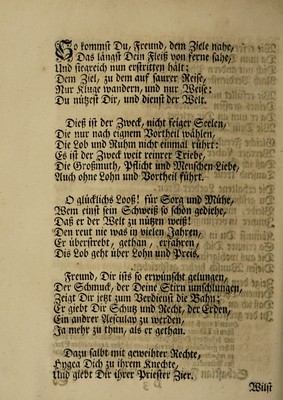 So kommst Du, Freund, dem Ziele nahe,
Das längst Dein Fleiß von ferne sahe,
Und siegreich nun erstritten hält:
Dem Ziel, zu dem auf saurer Reise,
Nur Kluge wandern, und nur Weise:
Du nützest Dir, und dienst der Welt.
Dieß ist der Zweck, nicht feiger Seelen,
Die nur nach eignem Vortheil wählen,
Die Lob und Ruhm nicht einmal rührt:
Es ist der Zweck weit reinrer Triebe,
Die Großmuth, Pflicht und Menschen-Liebe,
Auch ohne Lohn und Vortheil führt.
O glücklichs Looß! für Sorg und Mühe,
Wem einst sein Schweiß so schön gediehe,
Daß er der Welt zu nützen weiß!
Den reut nie was in vielen Jahren,
Er überstrebt, gethan, erfahren,
Diß Lob geht über Lohn und Preis.
Freund, Dir ists so erwünscht gelungen,
Der Schmuck, der Deine Stirn umschlungen,
Zeigt Dir jetzt zum Verdienst die Bahn:
Er giebt Dir Schutz und Recht, der Erden,
Ein andrer Aesculap zu werden,
Ja mehr zu thun, als er gethan.
Dazu salbt mit geweihter Rechte,
Hygea Dich zu ihrem Knechte,
Und giebt Dir ihrer Priester Zier.
Wilst